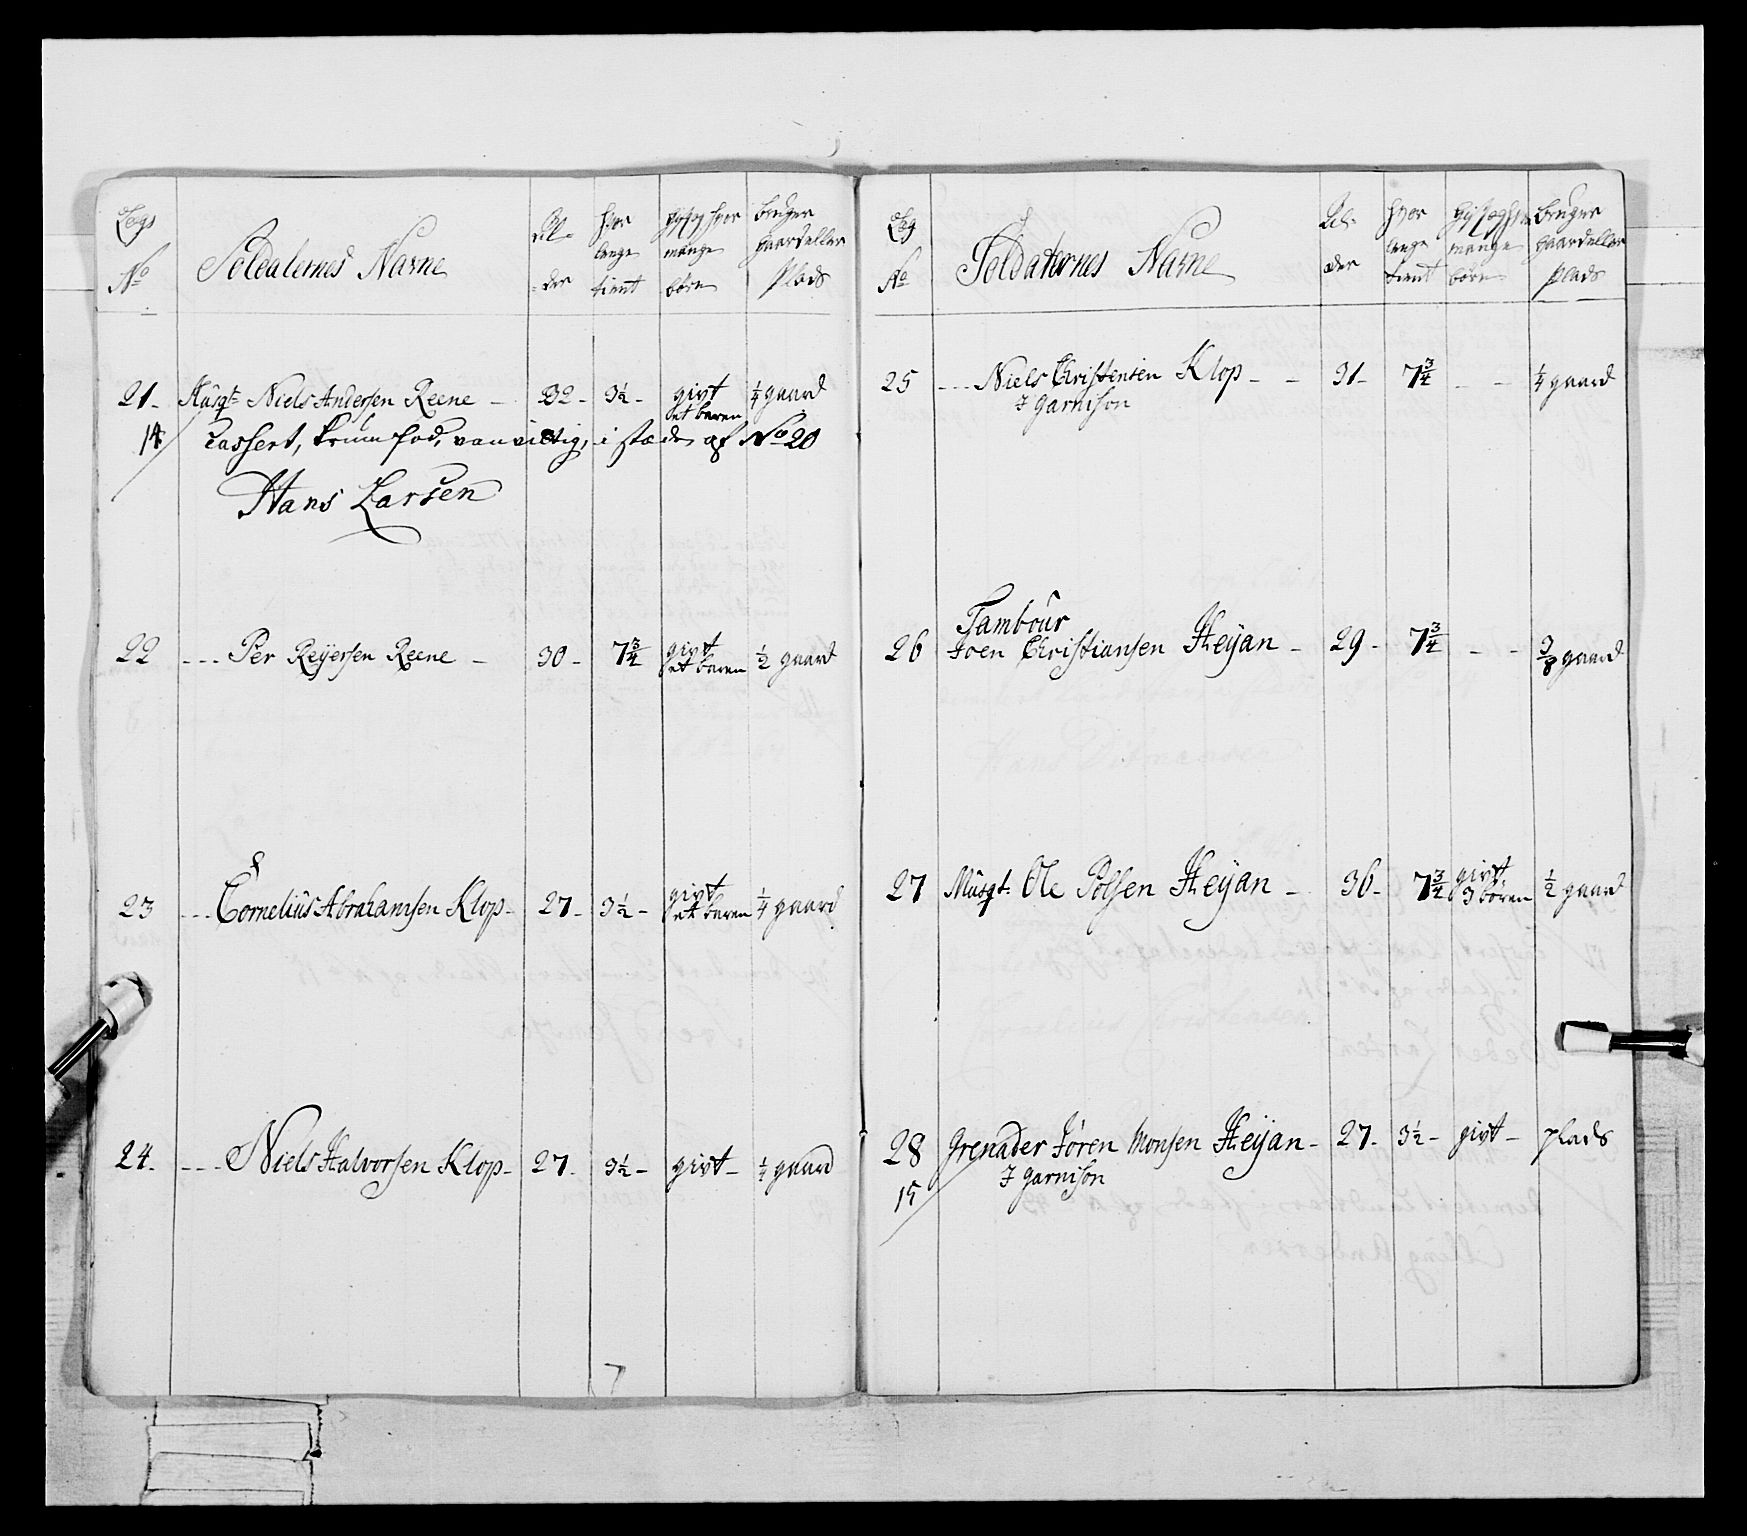 Legs No
Soldaternes Navne
Al-der
hvor længe tient
gift og hvor mange børn
bruger gaard eller Plads
21- Musqt Niels Andersen Reene - 32- 3½- givt et baren ¼ gaard
14 Cassert, krum fod, vanvittig, i stæde af No 20
Hans Larsen
22 --- Per Reÿersen Reene - 30- 7¾ givt et baren ½ gaard
23 --- Cornelius Abrahamsen Klop- 27- 3½- givt et baren ¼ gaard
24- --- Niels Halvorsen Klop- 27- 3½- givt- ¼ gaard
7
Leg No
Soldaternes Navne
Al-der
hvor længe tient
mange børn
bruger gaard eller Plads
25 --- Niels Christensen Klop - - 31- 7¾ - - ¼ gaard
I garnison
Tambour
26 Joen Christiansen Heÿan - 29- 7¾ - - ⅜ gaard
27 Musqt Ole Polsen Heÿan - 36- 7¾ givt 3 børen ½ gaard
28 Grenader Jören Monsen Heÿan - 27- 3½- givt- plads
15 I garnison